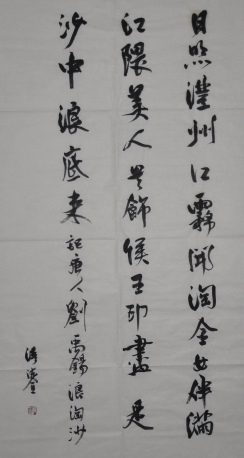 日照澄州江雾开淘金女伴满
江隈美人首飾侯王印盡是
沙中浪底来 記唐人劉禹錫浪淘沙